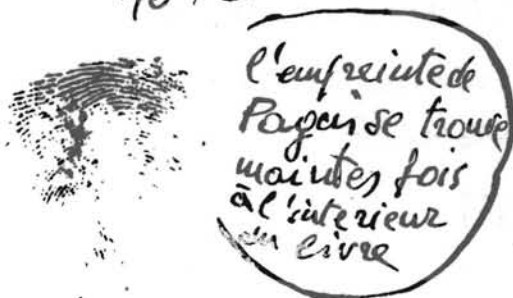 l'empreinte de
Pagai se trouve
maintes fois
à l'intérieur
du livre